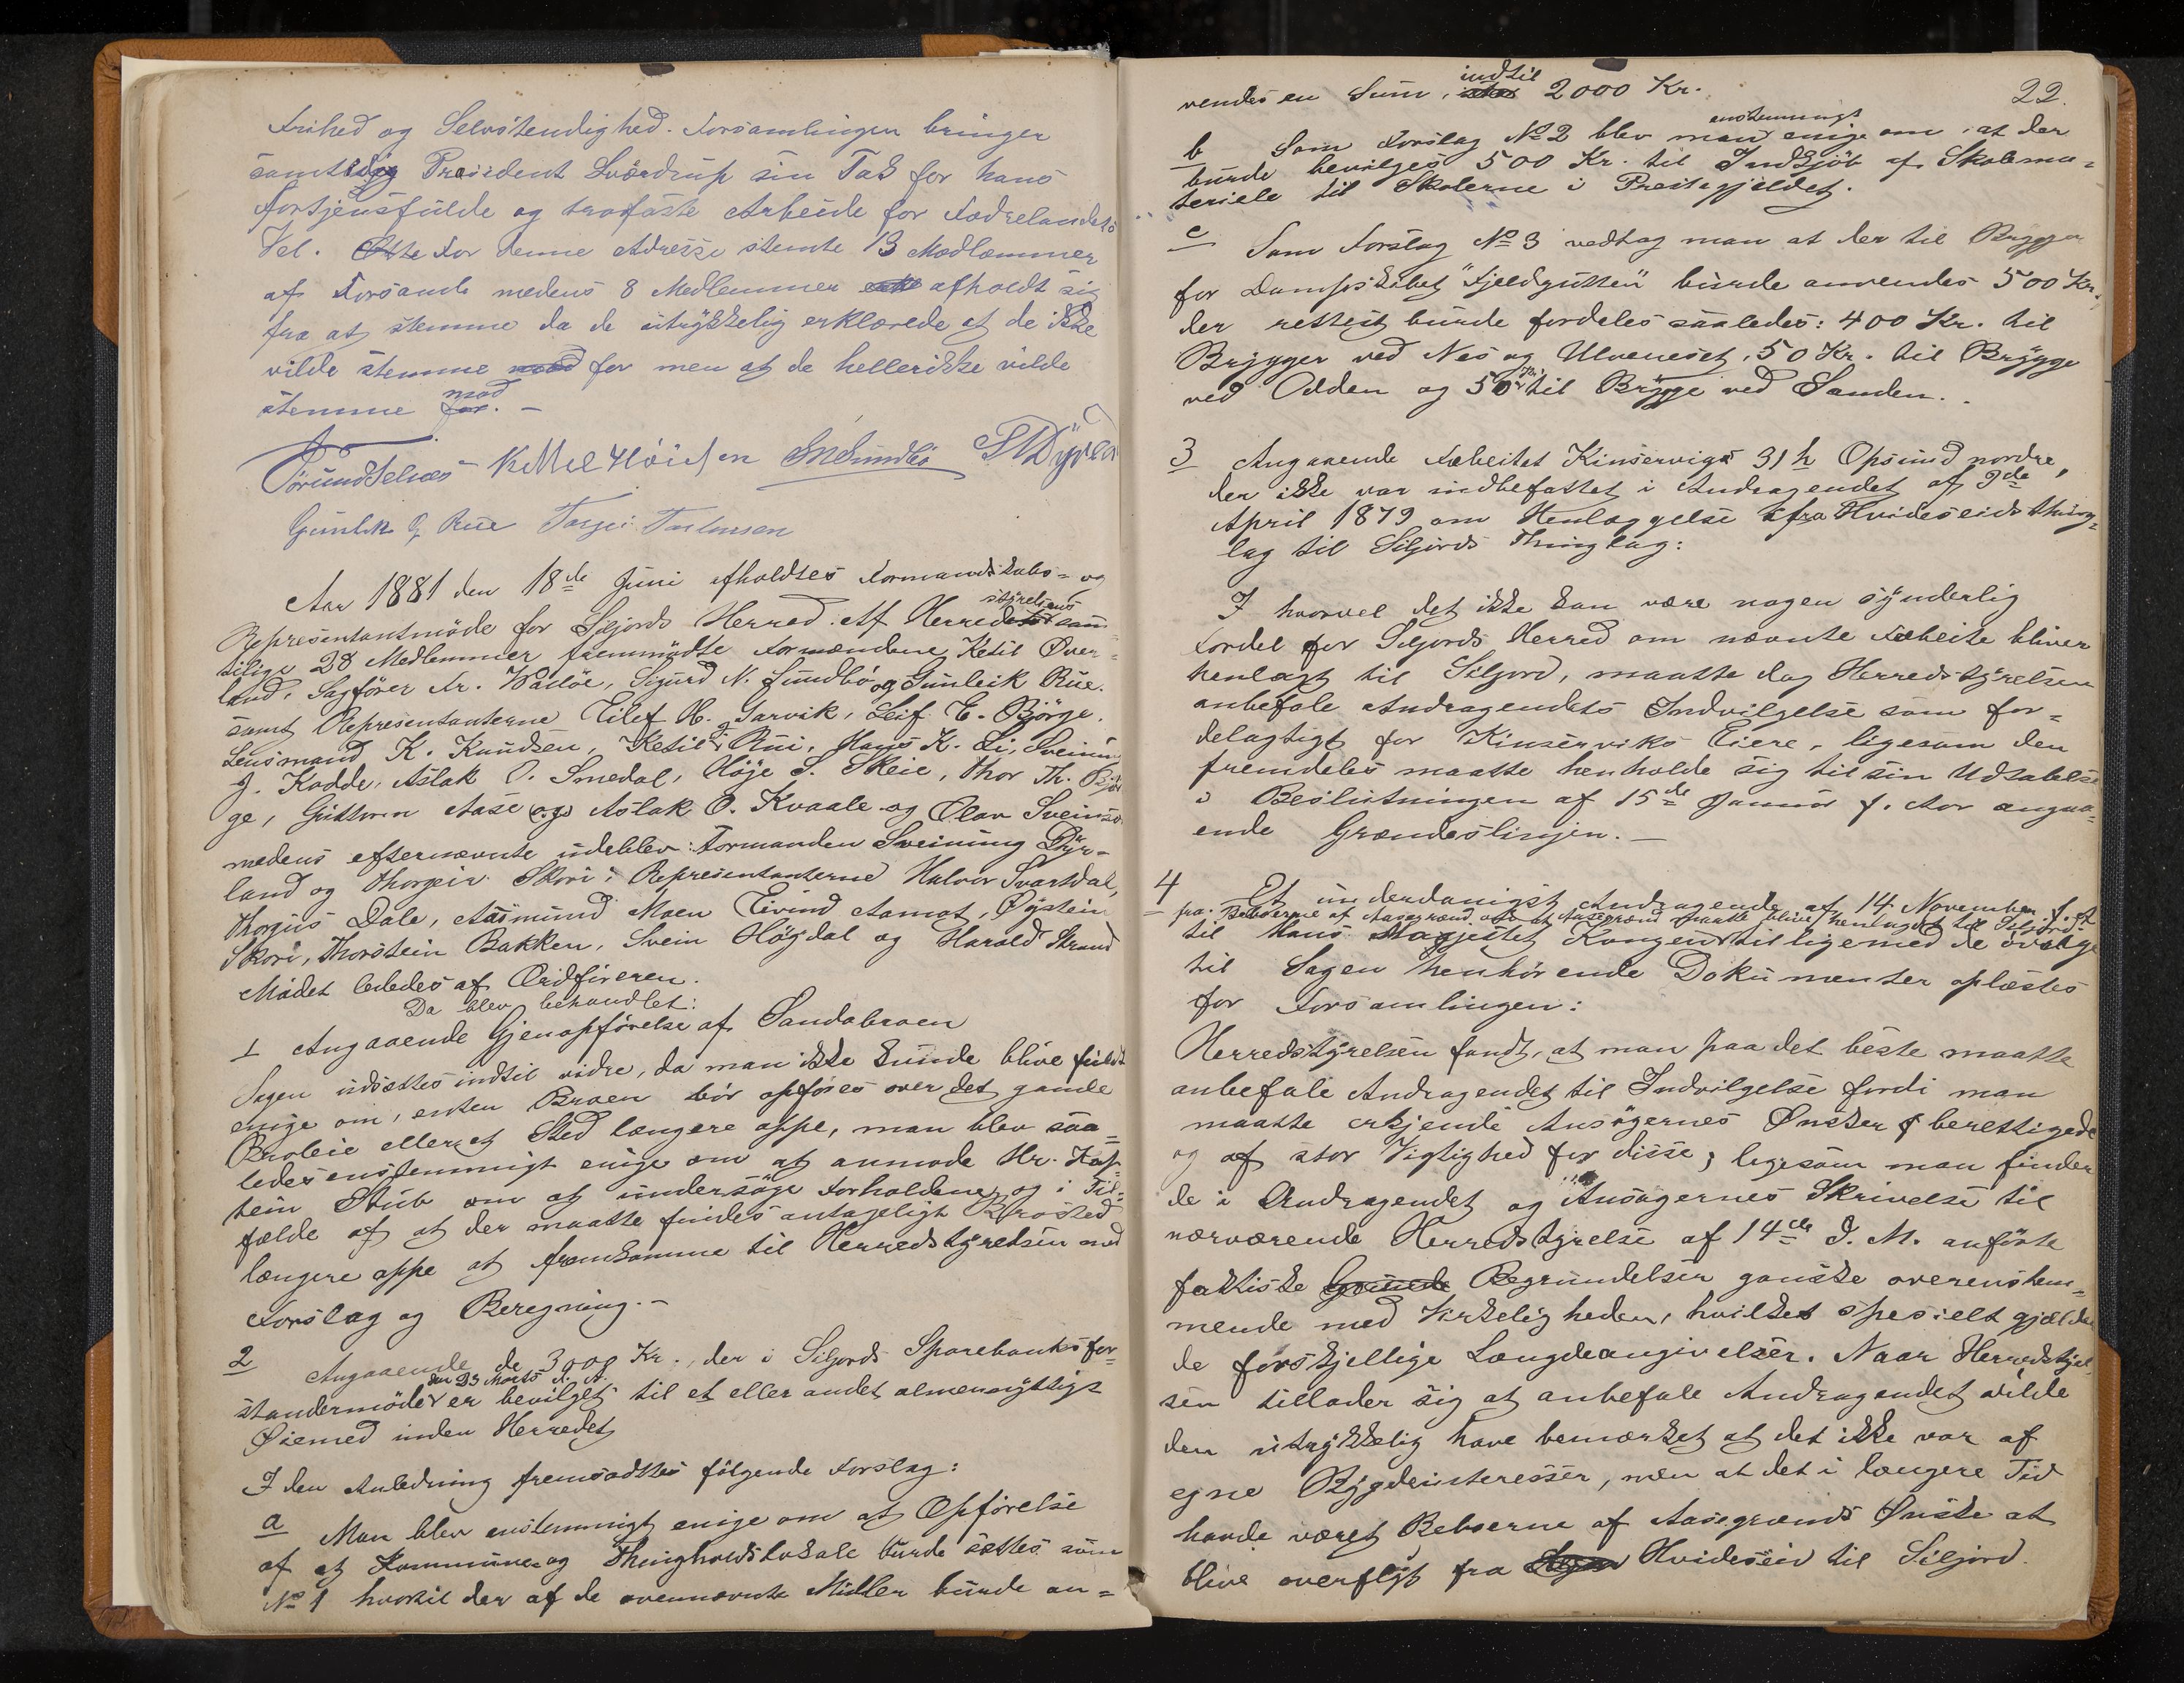 Frihed og Selvstendighed. Forsamlingen bringer
samtidig President Sverdrup sin Tak for hans
fortjenstfulde og trofaste Arbeide for Fædrelandets
Vel. For denne Adresse stemte 13 Medlemmer
af Forsaml. medens 8 Medlemmer afholdt sig
fra at stemme da de utrykkelig erklærede at de ikke
vilde stemme for men at de hellerikke vilde
stemme mod. –
Kittel Høidsen S N Sundbö
Gunlik O Rue Torjei
Aar 1881 den 18de Juni afholdtes Formandskabs- og
Representantmöde for Siljords Herred. Af Herredsstyrelsens sam-
tilige 28 Medlemmer fremmödte Formændene Ketil Över-
land, Sagförer Fr. Wallöe, Sigurd N. Sundbö og Gunleik Rue.
samt Representanterne Eilef H. Garvik, Leif E. Björge,
Lensmand K. Knudsen, Ketil Rui, Hans K. Li, Sveinung
J. Kodde, Aslak O. Smedal, Höje S. Skeie, Thor Th. Bjør
ge, Guttorm Aase og Aslak O. Kvaale og Olav Sveins
medens efternævnte udeblev: Formanden Sveinung Dyr-
land og Thorgeir Skori; Representanterne Halvor Svartdal,
Thorgus Dale, Aasmund Moen Eivind Aamot, Øystein
Skori, Thorstein Bakken, Svein Högdal og Harald Strand
Mödet lededes af Ordföreren.
Da blev behandlet:
1 Angaaende Gjenopförelse af Sandabroen
Sagen udsættes indtil vidre, da man ikke kunde blive fuldt
enige om, enten Broen bör opföres over det gamle
Broleie eller et Sted længere oppe, man blev saa-
ledes enstemmigt enige om at anmode Hr. Kap-
tein Stub om at undersöge Forholdene og i Til-
fælde af at der maatte findes antageligt Brosted
længere oppe at fremkomme til Herredstyrelsen med
Forslag og Beregning. –
2 Angaaende de 3000 Kr., der i Siljords Sparebanks for-
standermöde den 23 Marts d. A. er bevilget til et eller andet almennyttigt
Øiemed inden Herredet
I den Anledning fremsattes fölgende Forslag:
a Man blev enstemmigt enige om at Opförelse
af et Kommune og Thingholdslokale burde sættes som
No 1 hvortil der af de ovennævnte Midler burde an-
22.
vendes en Sum, indtil 2000 Kr.
b Som Forslag No 2 blev man enstemmigt enige om at der
burde bevilges 500 Kr. til Indkjöb af Skolema-
teriele til Skolerne i Prestegjeldet.
c Som Forslag No 3 vedtog man at der til Brygger
for Dampskibet "Fjeldgutten" burde anvendes 500 Kr.
der rettest burde fordeles saaledes: 400 Kr. til
Brygger ved Nes og Ulveneset, 50 Kr. til Brygge
ved Odden og 50 Kr. til Brygge ved Sanden.
3 Angaaende Fæbeitet Kinservigs 31 h Opsund nordre,
der ikke var indbefattet i Andragendet af 9de
April 1879 om Henlæggelse fra Hvideseids thing-
lag til Siljords Thinglag:
I hvorvel det ikke kan være nogen synderlig
Fordel for Siljords Herred om nævnte Fæbeite bliver
henlagt til Siljord, maatte dog Herredstyrelsen
anbefale Andragendets Indvilgelse som for-
delagtigt for Kinserviks Eiere, ligesom den
fremdeles maatte henholde sig til sin Udtalelse
i Beslutningen af 15de Januar f. Aar angaa-
ende Grændeslinjen. –
4 Et underdanigst Andragende af 14 November f. A
fra Beboerne af Aasegrænd om at Aasegrænd maatte blive henlagdt til Siljord
til Hans Majestet Kongen tilligemed de övrige
til Sagen henhörende Dokumenter oplæstes
for Forsamlingen:
Herredstyrelsen fandt, at man paa det beste maatte
anbefale Andragendet til Indvilgelse fordi man
maatte erkjende Ansögernes Ønsker berettigede
og af stor Vigtighed for disse, ligesom man finder
de i Andragendet og Ansögernes Skrivelse til
nærværende Herredstyrelse af 14de d. M. anförte
faktiske Begrundelser ganske overenstem-
mende med Virkeligheden, hvilket spesielt gjelder
de forskjellige Længdeangivelser. Naar Herredstyrel-
sen tillader sig at anbefale Andragendet vilde
den utrykkelig have bemærket at det ikke var af
egne Bygdeinteresser, men at det i længere Tid
havde været Beboerne af Aasegrænds Ønske at
blive overflyt fra Hvideseid til Siljord.